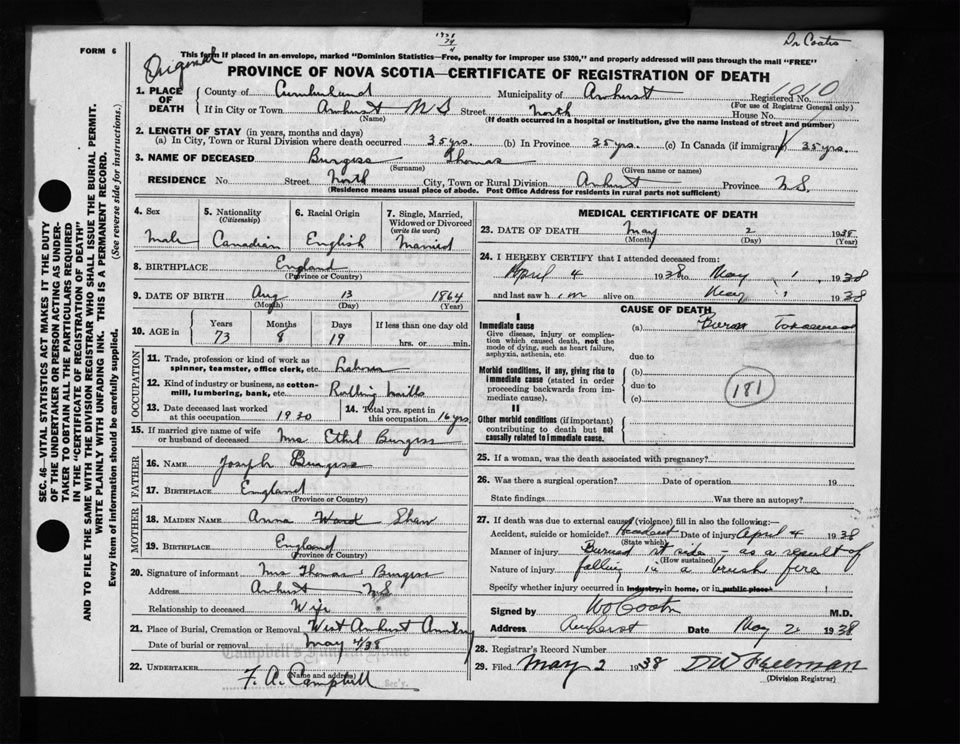 FORM 6
Original
Dr Coats
This form if placed in an envelope, marked "Dominion Statistics—Free, penalty for improper use $300," and properly addressed will pass through the mail "FREE"
PROVINCE OF NOVA SCOTIA—CERTIFICATE OF REGISTRATION OF DEATH
1. PLACE OF DEATH County of Cumberland Municipality of Amherst Registered No. 1010
(For use of Registrar General only)
If in City or Town Amherst N S Street North House No.
(Name) (If death occurred in a hospital or institution, give the name instead of street and number)
2. LENGTH OF STAY (in years, months and days)
(a) In City, Town or Rural Division where death occurred 35 yrs. (b) In Province 35 yrs. (c) In Canada (if immigrant) 35 yrs.
3. NAME OF DECEASED Burgess Thomas
(Surname) (Given name or names)
RESIDENCE No. Street North City, Town or Rural Division Amherst Province N.S.
(Residence means usual place of abode. Post Office Address for residents in rural parts not sufficient)
4. Sex Male
5. Nationality (Citizenship) Canadian
6. Racial Origin English
7. Single, Married, Widowed or Divorced (write the word) Married
8. BIRTHPLACE England
(Province or Country)
9. DATE OF BIRTH Aug 13 1864
(Month) (Day) (Year)
10. AGE in Years Months Days If less than one day old
73 8 19 hrs. or min.
OCCUPATION
11. Trade, profession or kind of work as spinner, teamster, office clerk, etc. Laborer
12. Kind of industry or business, as cotton-mill, lumbering, bank, etc. Rolling Mills
13. Date deceased last worked at this occupation 1930
14. Total yrs. spent in this occupation 16 yrs.
15. If married give name of wife or husband of deceased Mrs. Ethel Burgess
FATHER
16. NAME Joseph Burgess
17. BIRTHPLACE England
(Province or Country)
MOTHER
18. MAIDEN NAME Anna Ward Shaw
19. BIRTHPLACE England
(Province or Country)
20. Signature of informant Mrs Thomas Burgess
Address Amherst N.S.
Relationship to deceased Wife
21. Place of Burial, Cremation or Removal West Amherst
Date of burial or removal May 4/38
Campbell's Funeral Home
22. UNDERTAKER F. A. Campbell
(Name and address)
Sec'y.
MEDICAL CERTIFICATE OF DEATH
23. DATE OF DEATH May 2 1938
(Month) (Day) (Year)
24. I HEREBY CERTIFY that I attended deceased from:
April 4 1938 to May 1, 1938
and last saw h im alive on May 1, 1938
CAUSE OF DEATH
I
Immediate cause (a) Burns Toxaemia
Give disease, injury or complication which caused death, not the mode of dying, such as heart failure, asphyxia, asthenia, etc
due to
Morbid conditions, if any, giving rise to immediate cause (stated in order proceeding backwards from immediate cause).
(b)
due to
(c)
181
II
Other morbid conditions (if important) contributing to death but not causally related to immediate cause.
25. If a woman, was the death associated with pregnancy?
26. Was there a surgical operation? Date of operation 19
State findings Was there an autopsy?
27. If death was due to external causes (violence) fill in also the following:—
Accident, suicide or homicide? Accident Date of injury April 4 1938
(State which)
Manner of injury Burned rt side — as a result of
(How sustained)
Nature of injury falling in a brush fire
Specify whether injury occurred in industry, in home, or in public place
Signed by W Coats M.D.
Address Amherst Date May 2 1938
28. Registrar's Record Number
29. Filed May 2 1938 D W Freeman
(Division Registrar)
SEC. 46—VITAL STATISTICS ACT MAKES IT THE DUTY OF THE UNDERTAKER OR PERSON ACTING AS UNDERTAKER TO OBTAIN ALL THE PARTICULARS REQUIRED IN THE "CERTIFICATE OF REGISTRATION OF DEATH"
AND TO FILE THE SAME WITH THE DIVISION REGISTRAR WHO SHALL ISSUE THE BURIAL PERMIT.
WRITE PLAINLY WITH UNFADING INK. THIS IS A PERMANENT RECORD.
Every item of information should be carefully supplied. (See reverse side for instructions.)